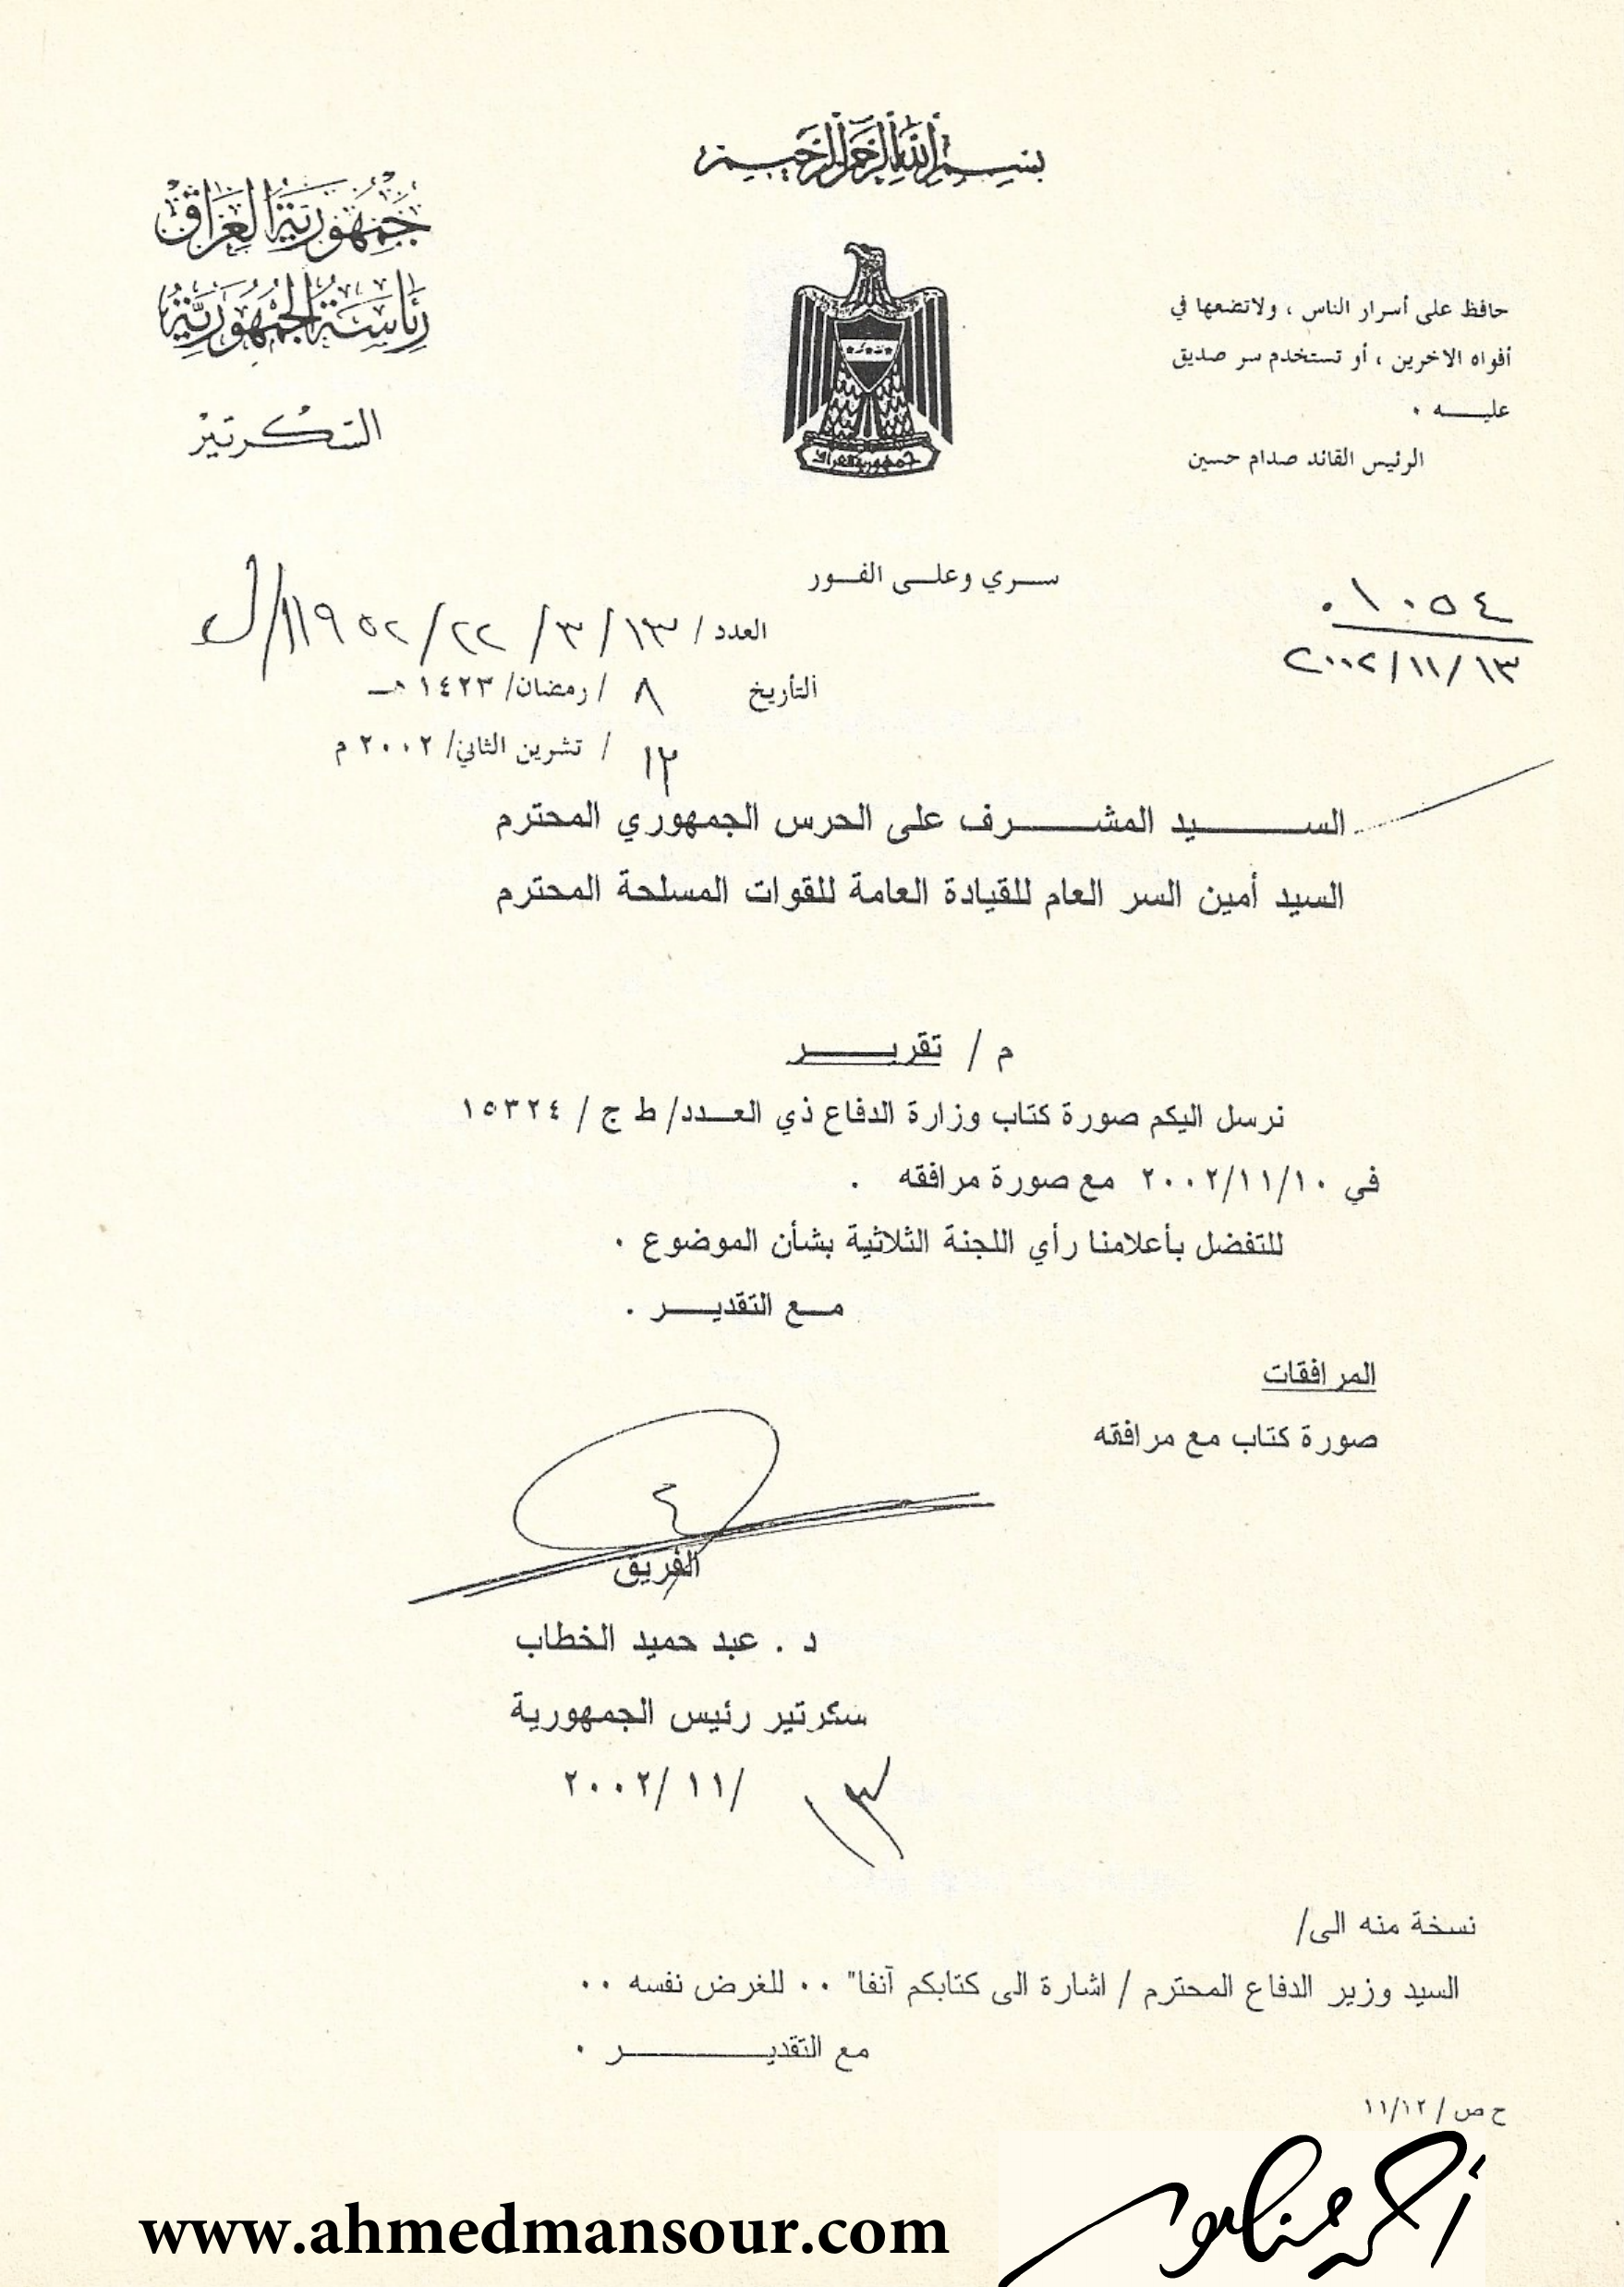 بسم الله الرحمن الرحيم
جمهورية العراق
رئاسة الجمهورية
السكرتير
جمهورية العراق
حافظ على أسرار الناس ، ولاتضعها في
أفواه الاخرين ، أو تستخدم سر صديق
عليـــه .
الرئيس القائد صدام حسين
ســري وعلــى الفــور
١٠٥٤
٢٠٠٢/١١/١٣
العدد / ١٣/ ٣/ ٢٢/
التأريخ ٨ / رمضان/ ١٤٢٣ هــ
١٢ / تشرين الثاني/ ٢٠٠٢ م
الســـــــيد المشـــــــرف على الحرس الجمهوري المحترم
السيد أمين السر العام للقيادة العامة للقوات المسلحة المحترم
م / تقريــــــر
نرسل اليكم صورة كتاب وزارة الدفاع ذي العــدد/ ط ج / ١٥٣٢٤
في ٢٠٠٢/١١/١٠ مع صورة مرافقه .
للتفضل بأعلامنا رأي اللجنة الثلاثية بشأن الموضوع .
مــع التقديـــــر .
المرافقات
صورة كتاب مع مرافقه
الفريق
د . عبد حميد الخطاب
سكرتير رئيس الجمهورية
١٣ /١١ /٢٠٠٢
نسخة منه الى/
السيد وزير الدفاع المحترم / اشارة الى كتابكم آنفا" .. للغرض نفسه ..
مع التقديـــــــــــر .
ح ص / ١١/١٢
أحمد منصور
www.ahmedmansour.com